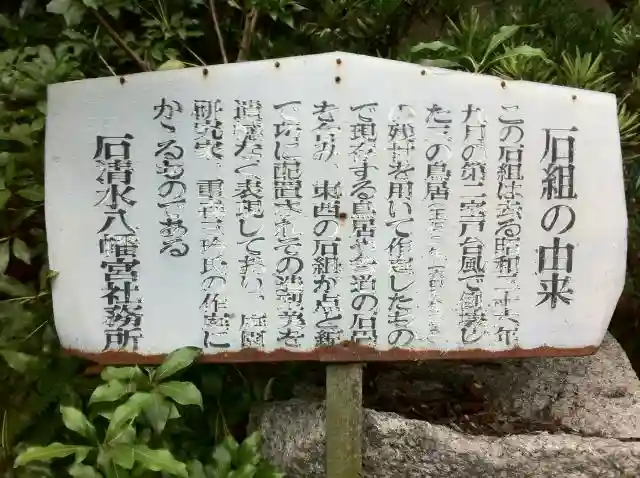 石組の由来
この石組は去る昭和三十六年
九月の第二室戸台風で倒壊し
た三の鳥居
の残材を用いて作庭したもの
で現存する鳥居と
を含み、東西の石組が点と線
で巧に配置されその造形美を
遺憾なく表現しており、庭園
研究家、重森三玲氏の作庭に
かゝるものである
石清水八幡宮社務所